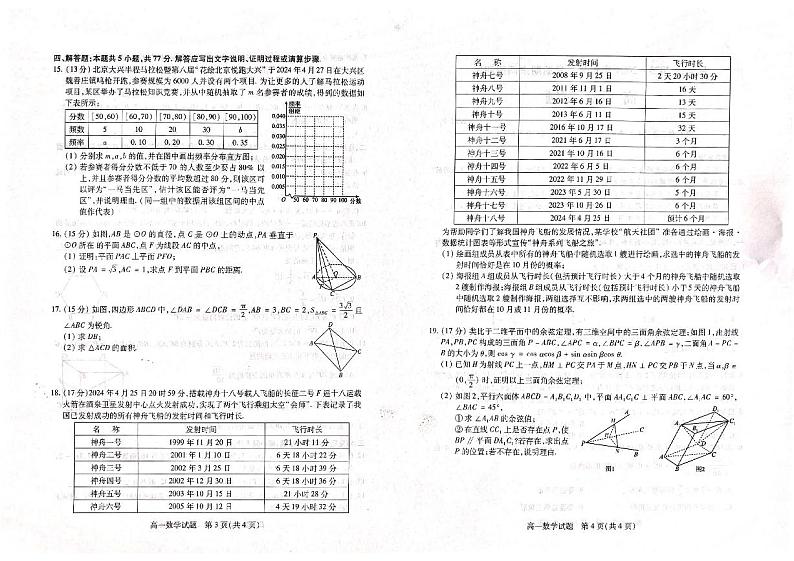 四、解答题:本题共5小题,共77分.解答应写出文字说明、证明过程或演算步骤.
15. (13分)北京大兴半程马拉松暨第八届“花绘北京悦跑大兴”于2024年4月27日在大兴区
魏善庄镇鸣枪开跑,参赛规模为6000人并设有两个项目.为让更多的人了解马拉松运动
项目,某区举办了马拉松知识竞赛,并从中随机抽取了m名参赛者的成绩,得到的数据如
下表所示:
分数 [50,60) [60,70) [70,80) [80,90) [90,100)
频数 5 10 20 30 b
频率 a 0.10 0.20 0.30 0.35
频率
组距
0.040
0.035
0.030
0.025
0.020
0.015
0.010
0.005
O 50 60 70 80 90 100 分数
(1)分别求m,a,b的值,并在图中画出频率分布直方图;
(2)若参赛者得分分数不低于70的人数至少要占80%以
上,并且参赛者得分分数的平均数超过80分,则该区可
以评为“一马当先区”,估计该区能否评为“一马当先
区”,并说明理由.(同一组中的数据用该组区间的中点
值作代表)
16. (15分)如图,AB是⊙O的直径,点C是⊙O上的动点,PA垂直于
⊙O所在的平面ABC,点F为线段AC的中点.
(1)证明:平面PAC⊥平面PFO;
(2)设PA=√3,AC=1,求点F到平面PBC的距离.
17. (15分)如图,四边形ABCD中,∠DAB=∠DCB=π/2,AB=3,BC=2,S△ABC=3√3/2且
∠ABC为锐角.
(1)求DB;
(2)求△ACD的面积.
18. (17分)2024年4月25日20时59分,搭载神舟十八号载人飞船的长征二号F遥十八运载
火箭在酒泉卫星发射中心点火发射成功,实现了两个飞行乘组太空“会师”.下表记录了我
国已发射成功的所有神舟飞船的发射时间和飞行时长.
名 称 发射时间 飞行时长
神舟一号 1999年11月20日 21小时11分
神舟二号 2001年1月10日 6天18小时22分
神舟三号 2002年3月25日 6天18小时39分
神舟四号 2002年12月30日 6天18小时36分
神舟五号 2003年10月15日 21小时28分
神舟六号 2005年10月12日 4天19小时32分
高一数学试题 第3页(共4页)
名 称 发射时间 飞行时长
神舟七号 2008年9月25日 2天20小时30分
神舟八号 2011年11月1日 16天
神舟九号 2012年6月16日 13天
神舟十号 2013年6月11日 15天
神舟十一号 2016年10月17日 32天
神舟十二号 2021年6月17日 3个月
神舟十三号 2021年10月16日 6个月
神舟十四号 2022年6月5日 6个月
神舟十五号 2022年11月29日 6个月
神舟十六号 2023年5月30日 5个月
神舟十七号 2023年10月26日 6个月
神舟十八号 2024年4月25日 预计6个月
为帮助同学们了解我国神舟飞船的发展情况,某学校“航天社团”准备通过绘画·海报·
数据统计图表等形式宣传“神舟系列飞船之旅”.
(1)绘画组成员从表中所有的神舟飞船中随机选取1艘进行绘画,求选中的神舟飞船的发
射时间恰好是在10月份的概率;
(2)海报组A组成员从飞行时长(包括预计飞行时长)大于4个月的神舟飞船中随机选取
2艘制作海报,海报组B组成员从飞行时长(包括预计飞行时长)小于5天的神舟飞船
中随机选取1艘制作海报,两组选择互不影响,求两组选中的两艘神舟飞船的发射时
间恰好都在10月或11月份的概率.
19. (17分)类比于二维平面中的余弦定理,有三维空间中的三面角余弦定理:如图1,由射线
PA,PB,PC构成的三面角P-ABC,∠APC=α,∠BPC=β,∠APB=γ,二面角A-PC-
B的大小为θ,则cosγ=cosαcosβ+sinαsinβcosθ.
(1)已知H为射线PC上一点,HM⊥PC交PA于点M,HN⊥PC交PB于点N,当α,β∈
(0,π/2)时,证明以上三面角余弦定理;
(2)如图2,平行六面体ABCD-A₁B₁C₁D₁中,平面AA₁C₁C⊥平面ABCD,∠A₁AC=60°,
∠BAC=45°,
①求∠A₁AB的余弦值;
②在直线CC₁上是否存在点P,使
BP∥平面DA₁C₁?若存在,求出点
P的位置;若不存在,说明理由.
图1
图2
高一数学试题 第4页(共4页)